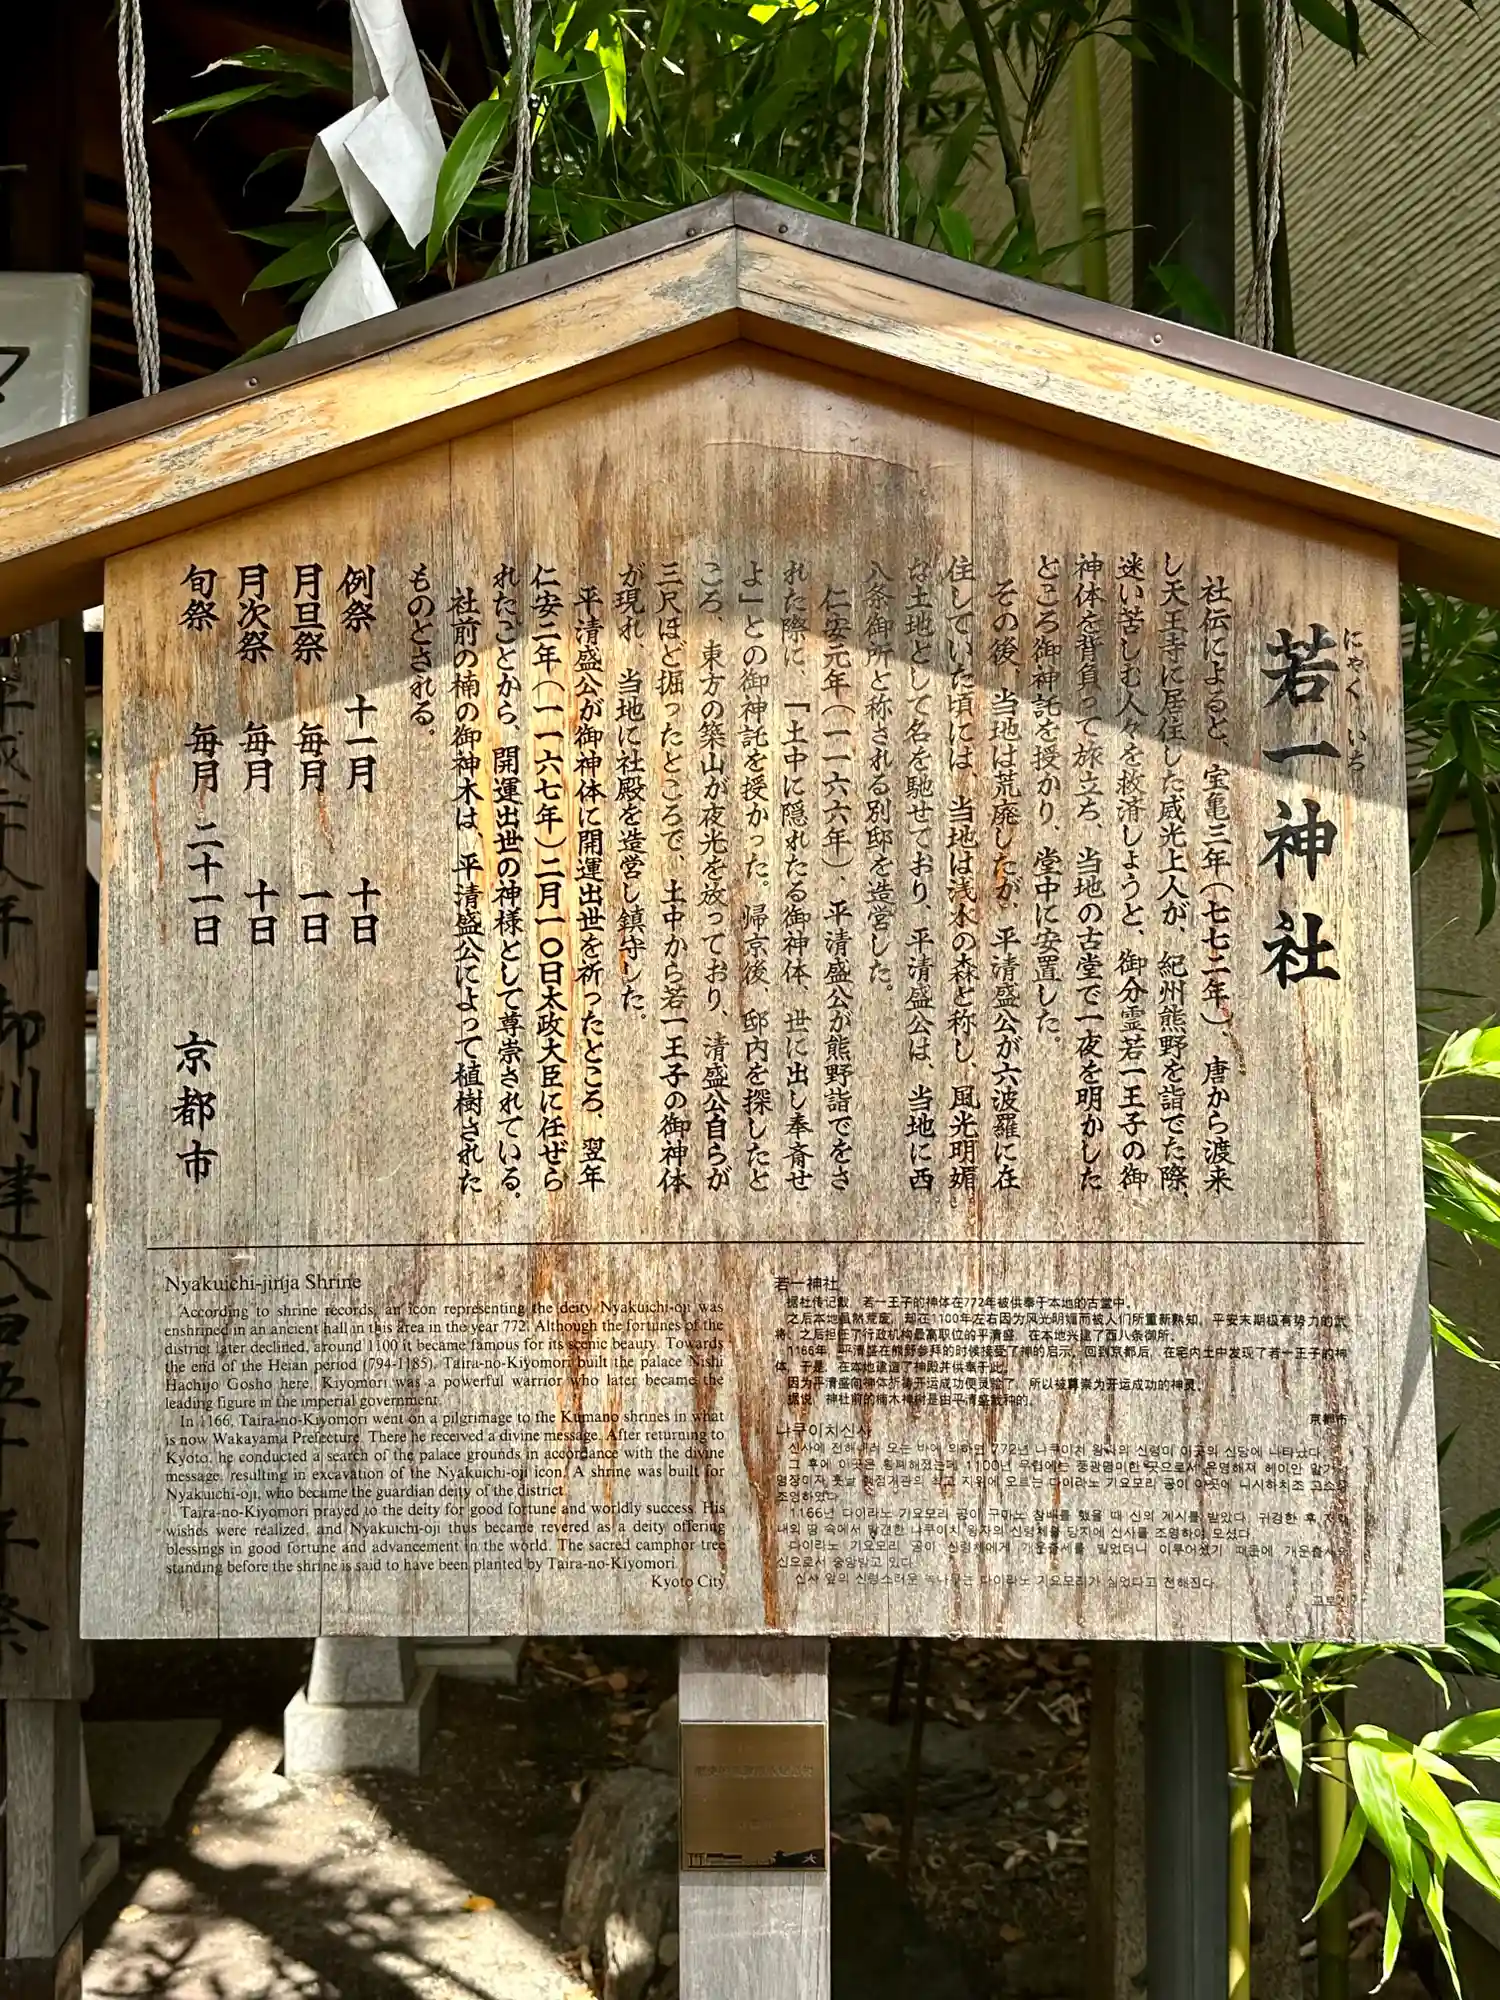 若一神社
にゃく いち
社伝によると、宝亀三年(七七二年)、唐から渡来
し天王寺に居住した威光上人が、紀州熊野を詣でた際、
迷い苦しむ人々を救済しようと、御分霊若一王子の御
神体を背負って旅立ち、当地の古堂で一夜を明かした
ところ御神託を授かり、堂中に安置した。
その後、当地は荒廃したが、平清盛公が六波羅に在
住していた頃には、当地は浅水の森と称し、風光明媚
な土地として名を馳せており、平清盛公は、当地に西
八条御所と称される別邸を造営した。
仁安元年(一一六六年)、平清盛公が熊野詣でをさ
れた際に、「土中に隠れたる御神体、世に出し奉斎せ
よ」との御神託を授かった。帰京後、邸内を探したと
ころ、東方の築山が夜光を放っており、清盛公自らが
三尺ほど掘ったところで、土中から若一王子の御神体
が現れ、当地に社殿を造営し鎮守した。
平清盛公が御神体に開運出世を祈ったところ、翌年
仁安二年(一一六七年)二月一〇日太政大臣に任ぜら
れたことから、開運出世の神様として尊崇されている。
社前の楠の御神木は、平清盛公によって植樹された
ものとされる。
例祭 十一月 十日
月旦祭 毎月 一日
月次祭 毎月 十日
旬祭 毎月 二十一日
京都市
Nyakuichi-jinja Shrine
According to shrine records, an icon representing the deity Nyakuichi-oji was
enshrined in an ancient hall in this area in the year 772. Although the fortunes of the
district later declined, around 1100 it became famous for its scenic beauty. Towards
the end of the Heian period (794-1185), Taira-no-Kiyomori built the palace Nishi
Hachijo Gosho here. Kiyomori was a powerful warrior who later became the
leading figure in the imperial government.
In 1166, Taira-no-Kiyomori went on a pilgrimage to the Kumano shrines in what
is now Wakayama Prefecture. There he received a divine message. After returning to
Kyoto, he conducted a search of the palace grounds in accordance with the divine
message, resulting in excavation of the Nyakuichi-oji icon. A shrine was built for
Nyakuichi-oji, who became the guardian deity of the district.
Taira-no-Kiyomori prayed to the deity for good fortune and worldly success. His
wishes were realized, and Nyakuichi-oji thus became revered as a deity offering
blessings in good fortune and advancement in the world. The sacred camphor tree
standing before the shrine is said to have been planted by Taira-no-Kiyomori.
Kyoto City
若一神社
据社传记载，若一王子的神体在772年被供奉于本地的古堂中。
之后本地虽然荒废，却在1100年左右因为风光明媚而被人们所重新熟知。平安末期极有势力的武
将、之后担任了行政机构最高职位的平清盛，在本地兴建了西八条御所。
1166年，平清盛在熊野参拜的时候接受了神的启示。回到京都后，在宅内土中发现了若一王子的神
体，于是，在本地建造了神殿并供奉于此。
因为平清盛向神体祈祷开运成功便灵验了，所以被尊崇为开运成功的神灵。
据说，神社前的楠木神树是由平清盛栽种的。
京都市
나쿠이치신사
신사에 전해내려 오는 바에 의하면 772년 나쿠이치 왕자의 신령이 이곳의 신당에 나타났다.
그 후에 이곳은 황폐해졌는데 1100년 무렵에는 풍광명미한 곳으로서 유명해져 헤이안 말기
명장이자 훗날 행정기관의 최고 지위에 오르는 다이라노 기요모리 공이 이곳에 니시하치조 고쇼를
조영하였다.
1166년 다이라노 기요모리 공이 구마노 참배를 했을 때 신의 계시를 받았다. 귀경한 후 저택
내의 땅 속에서 발견한 나쿠이치 왕자의 신령체를 당지에 신사를 조영하여 모셨다.
다이라노 기요모리 공이 신령체에게 개운출세를 빌었더니 이루어졌기 때문에 개운출세의
신으로서 숭앙받고 있다.
신사 앞의 신령스러운 녹나무는 다이라노 기요모리가 심었다고 전해진다.
교토시